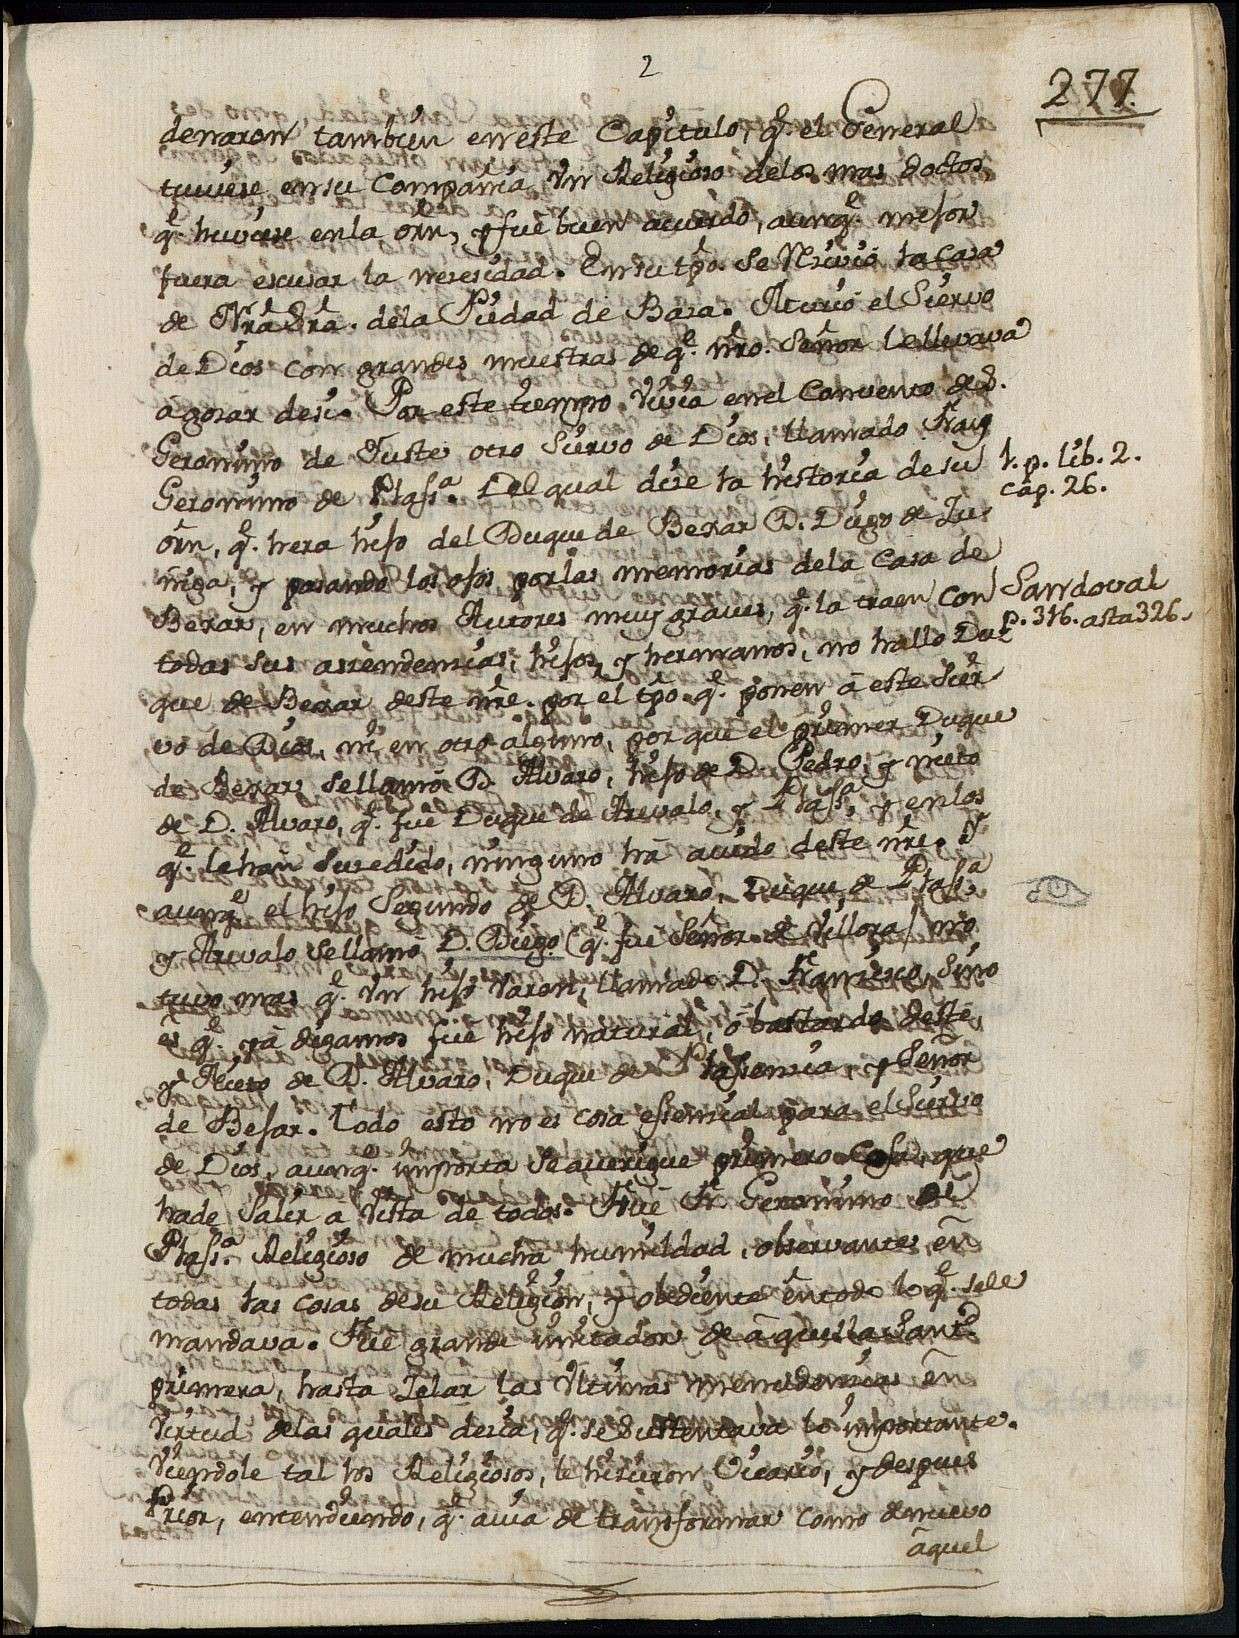 2
277.
denaron tambien en este Capitulo, q̃. el General
tuviese en su Compañia Vn Religioso delos mas doctos,
q̃. huviese enla orñ, y fue buen acuerdo, aunq̃. mejor
fuera escusar la nesesidad. En su tpo. se la Casa
de Nrã Srã. dela Piedad de Baza. Murio el Siervo
de Dios con grandes muestras de q̃. nrõ. Señor le llevava
a gosar desi. Por este tiempo Vivia en el Convento de S.
Geronimo de Yuste otro Siervo de Dios, llamado Fray
Geronimo de Plasª. Del qual dise la historia de su
1. p. lib. 2.
cap. 26.
orñ, q̃. hera hijo del Duque de Bexar D. Diego de Zu
ñiga, y pasando los ojos por las memorias dela Casa de
Bexar, en muchos Autores muy graves, q̃. la traen con
Sandoval
p. 316. asta 326.
todas sus assendencias, hijos, y hermanos, no hallo Du
que de Bexar deste nrẽ. por el tpo. q̃. ponen â este Sier
vo de Dios, ni en otro alguno, por que el primer Duque
de Bexar se llamô D. Alvaro, hijo de D. Pedro, y nieto
de D. Alvaro, q̃. fue Duque de Arevalo, y Plasª, y enlos
q̃. le han Susedido, ninguno ha avido deste nrẽ. Y
aunq̃ el hijo Segundo de D. Alvaro, Duque de Plasª
y Arevalo se llamô D. Diego (q̃. fue Señor de Villora) no
tuvo mas q̃. Vn hijo Varon, llamado D. Francisco, Sino
es q̃. ya digamos fue hijo natural, ô bastardo deste,
y Nieto de D. Alvaro, Duque de Plasencia, y Señor
de Bejar. Todo esto no es cosa esencial para el Siervo
de Dios, aunq̃. importa se averigue primero Cosa, que
ha de Salir a Vista de todos. Fue Fr. Geronimo de
Plasª. Religioso de mucha humildad, observante, en
todas las cosas de su Religion, y obediente en todo lo q̃. sele
mandava. Fue grande imitador de aquella Santᵈ
primera, hasta Zelar las Vltimas menudencias en
Virtud delas quales desia, q̃. se Sustentava lo importante.
Viendole tal los Religiosos, le hisieron Vicario, y despues
Prior, entendiendo, q̃. avia de transformar como de nuevo
âquel